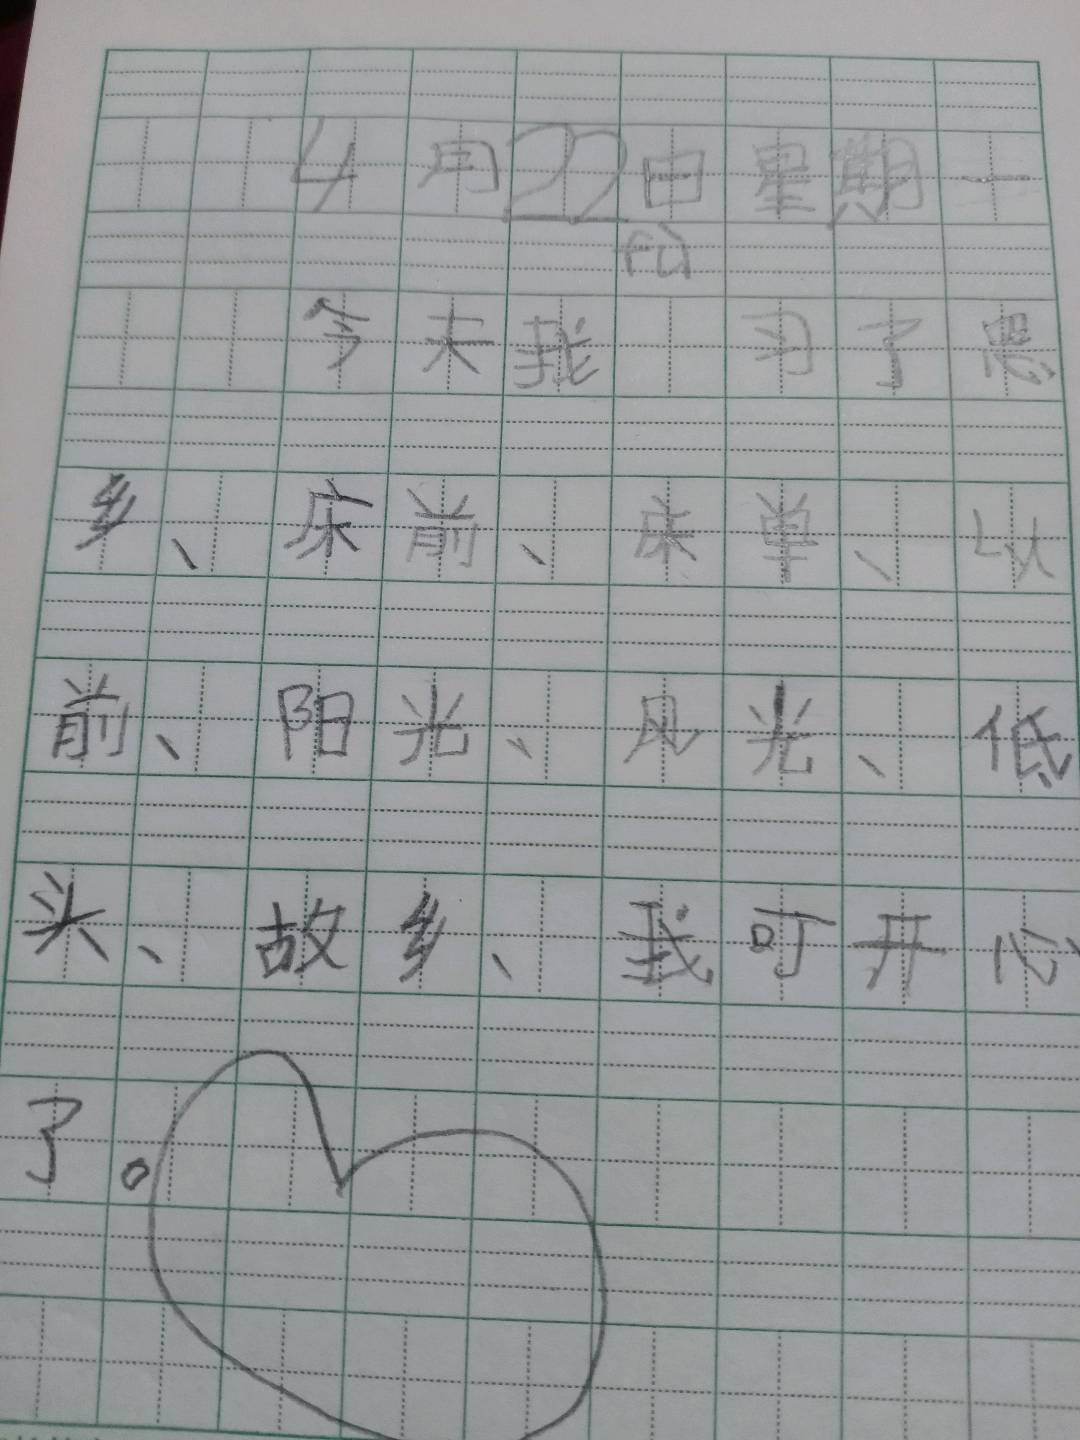 4月22日星期一
fù
今天我 习了思
乡、床前、床单、以
前、阳光、风光、低
头、故乡、我可开心
了。